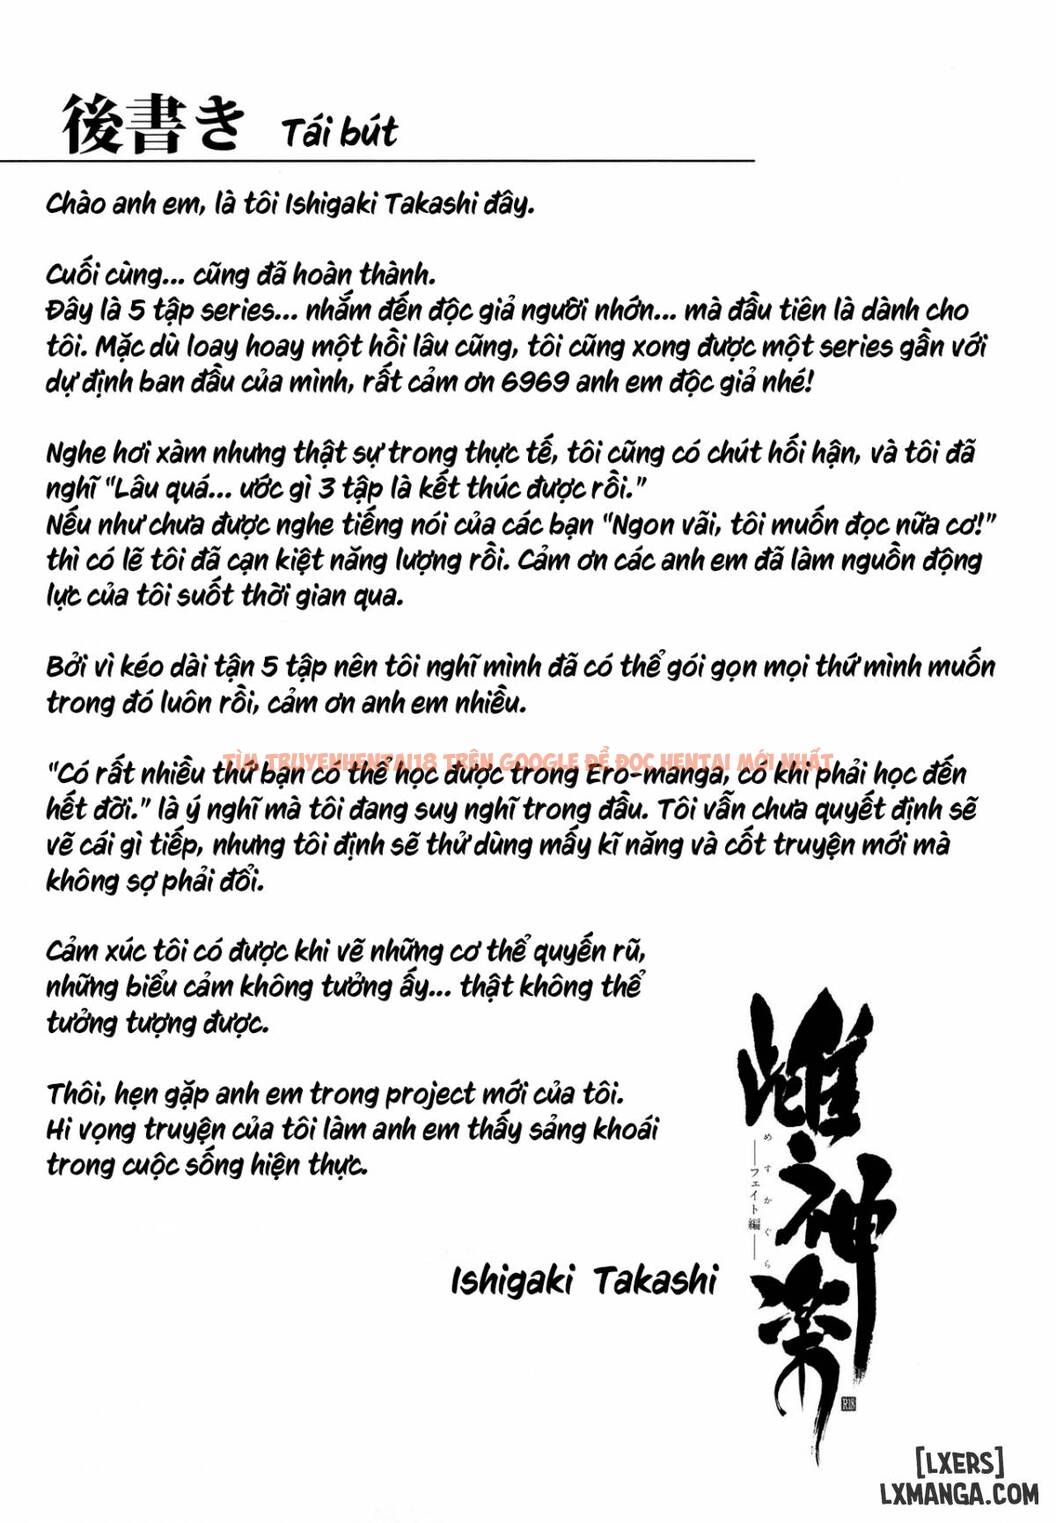 後書き Tái bút
Chào anh em, là tôi Ishigaki Takashi đây.
Cuối cùng... cũng đã hoàn thành.
Đây là 5 tập series... nhắm đến độc giả người nhớn... mà đầu tiên là dành cho
tôi. Mặc dù loay hoay một hồi lâu cũng, tôi cũng xong được một series gần với
dự định ban đầu của mình, rất cảm ơn 6969 anh em độc giả nhé!
Nghe hơi xàm nhưng thật sự trong thực tế, tôi cũng có chút hối hận, và tôi đã
nghĩ "Lâu quá... ước gì 3 tập là kết thúc được rồi."
Nếu như chưa được nghe tiếng nói của các bạn "Ngon vãi, tôi muốn đọc nữa cơ!"
thì có lẽ tôi đã cạn kiệt năng lượng rồi. Cảm ơn các anh em đã làm nguồn động
lực của tôi suốt thời gian qua.
Bởi vì kéo dài tận 5 tập nên tôi nghĩ mình đã có thể gói gọn mọi thứ mình muốn
trong đó luôn rồi, cảm ơn anh em nhiều.
TÌM TRUYENHENTAI18 TRÊN GOOGLE ĐỂ ĐỌC HENTAI MỚI NHẤT
"Có rất nhiều thứ bạn có thể học được trong Ero-manga, có khi phải học đến
hết đời." là ý nghĩ mà tôi đang suy nghĩ trong đầu. Tôi vẫn chưa quyết định sẽ
vẽ cái gì tiếp, nhưng tôi định sẽ thử dùng mấy kĩ năng và cốt truyện mới mà
không sợ phải đổi.
Cảm xúc tôi có được khi vẽ những cơ thể quyến rũ,
những biểu cảm không tưởng ấy... thật không thể
tưởng tượng được.
Thôi, hẹn gặp anh em trong project mới của tôi.
Hi vọng truyện của tôi làm anh em thấy sảng khoái
trong cuộc sống hiện thực.
Ishigaki Takashi
雌神楽
めすかぐら
―フェイト編―
R18
[LXERS]
LXMANGA.COM